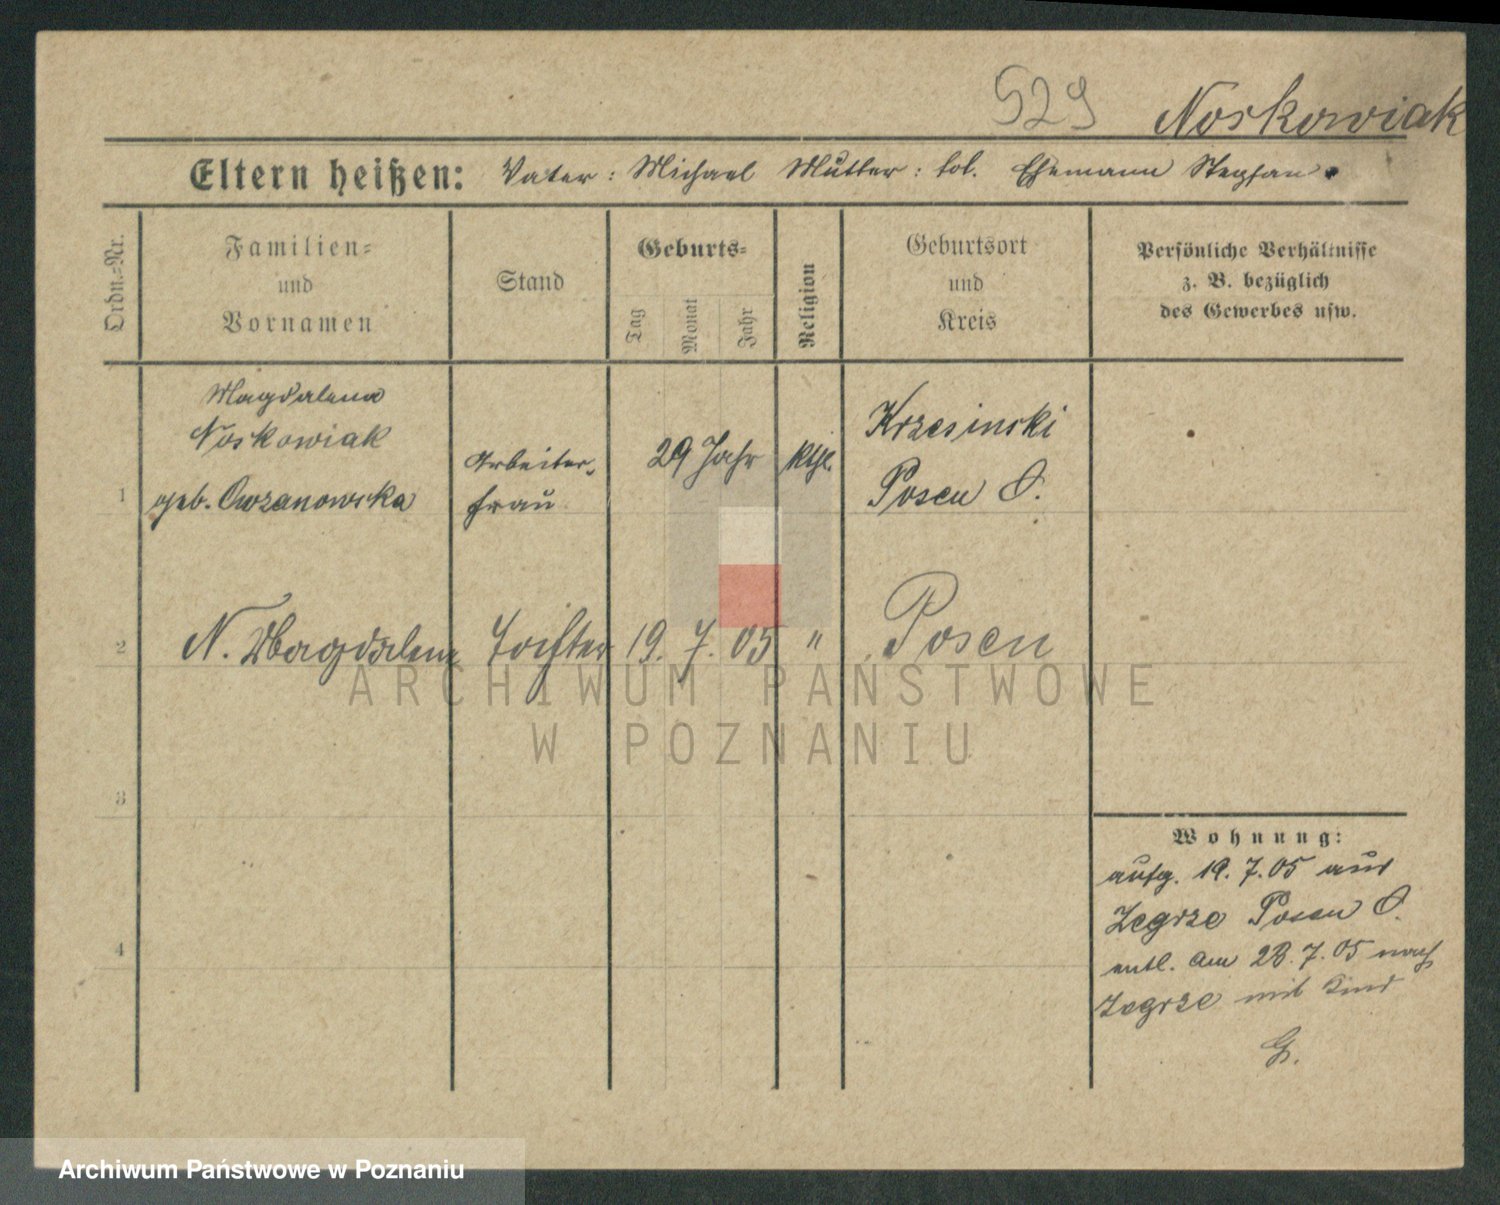 529 Noskowiak
Eltern heißen: Vater: Michael Mutter: tot. Ehemann Stephan
Ordn.-Nr.
Familien-
und
Vornamen
Stand
Geburts-
Tag
Monat
Jahr
Religion
Geburtsort
und
Kreis
Persönliche Verhältnisse
z. B. bezüglich
des Gewerbes usw.
1
Magdalena
Noskowiak
geb. Owzanowska
Arbeiter-
frau
29 Jahr
kthl.
Krzesinski
Posen O.
2
N. Magdalena
Tochter
19. 7. 05
"
Posen
3
4
Wohnung:
aufg. 19. 7. 05 aus
Zegrze Posen O.
entl. am 28. 7. 05 nach
Zegrze mit Kind
G.
ARCHIWUM PAŃSTWOWE
W POZNANIU
Archiwum Państwowe w Poznaniu